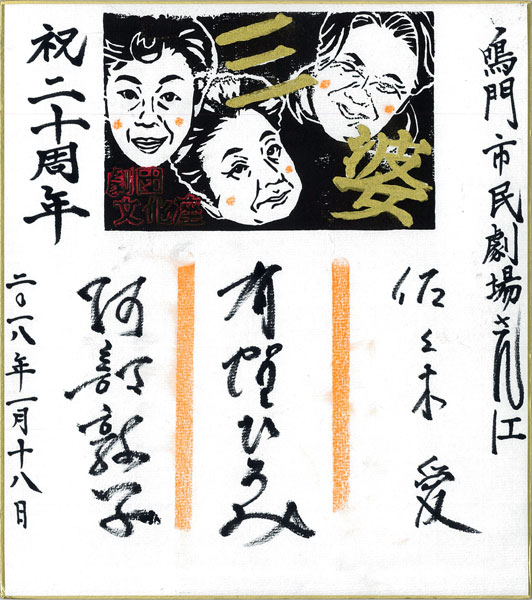 鳴門市民劇場さん江
三婆
劇団
文化座
祝二十周年
佐々木愛
有賀ひろみ
阿部敦子
二〇一八年一月十八日